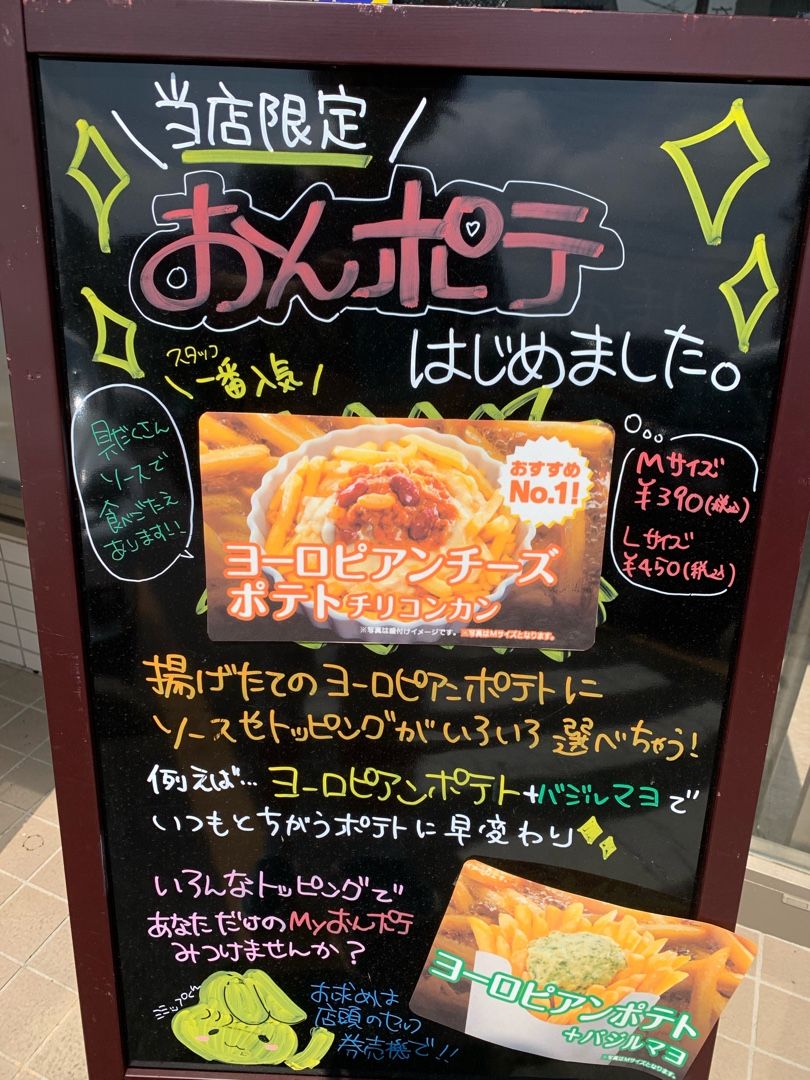 \当店限定/
おんポテ
はじめました。
スタッフ
\一番人気/
具だくさん
ソースで
食べごたえ
あります!!
おすすめ
No.1!
Mサイズ
¥390(税込)
Lサイズ
¥450(税込)
ヨーロピアンチーズ
ポテトチリコンカン
※写真は盛付けイメージです。※写真はMサイズとなります。
揚げたてのヨーロピアンポテトに
ソースやトッピングがいろいろ選べちゃう!
例えば…ヨーロピアンポテト+バジルマヨで
いつもとちがうポテトに早変わり
いろんなトッピングで
あなただけのMyおんポテ
みつけませんか?
お求めは
店頭のセルフ
券売機で!!
ヨーロピアンポテト
+バジルマヨ
※写真はMサイズとなります。